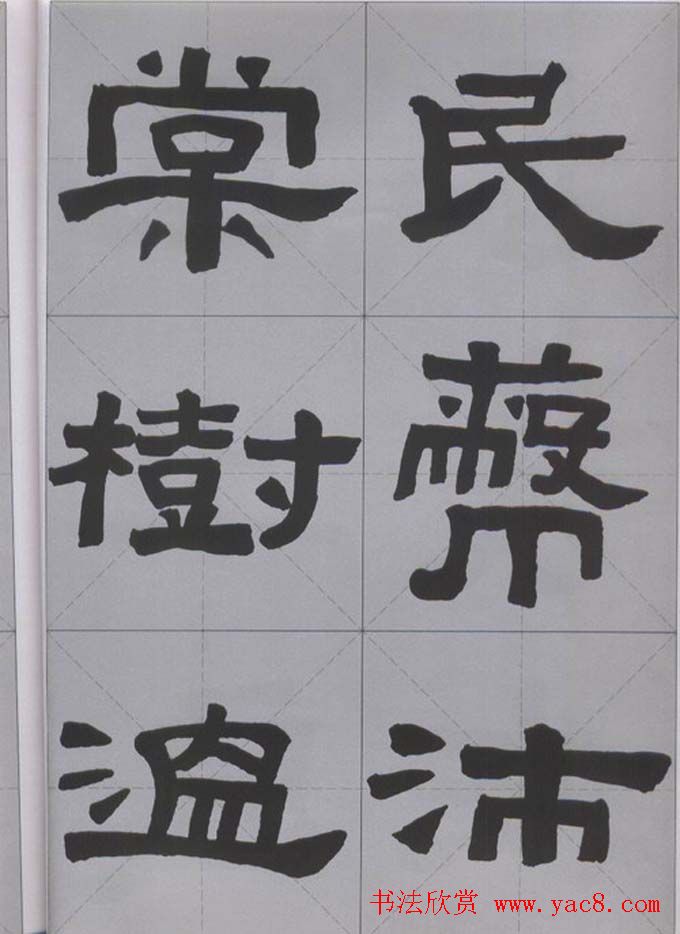 民蔽沛
棠樹溫
书法欣赏 www.yac8.com